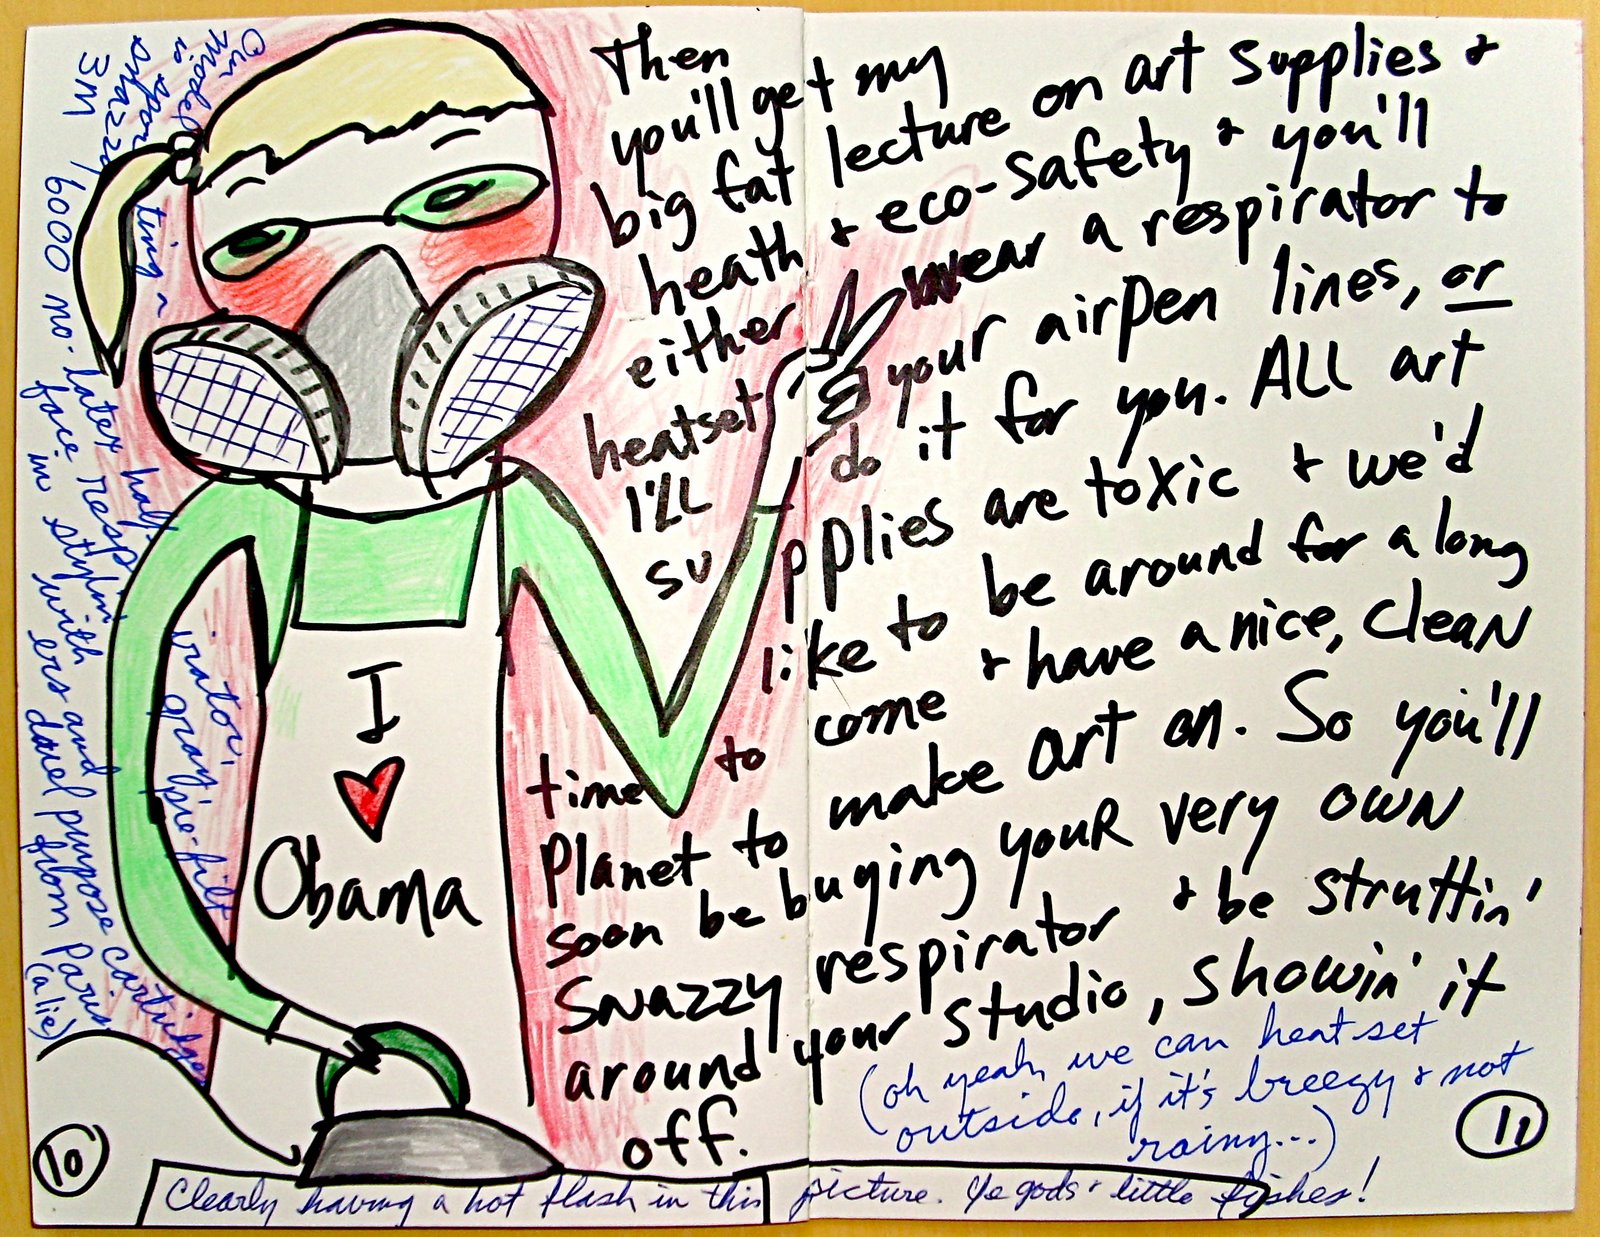 Our
model
is sporting a
snazzy
3M 6000 no-latex half-
face respirator,
in stylin' gray,
with pre-filt
ers and duel purpose cartridges
from Paris
(a lie)
I
♥
Obama
Then
you'll get my
big fat lecture on art supplies &
heath & eco-safety & you'll
either wear a respirator to
heatset your airpen lines, or
I'LL do it for you. ALL art
supplies are toxic & we'd
like to be around for a long
time to come & have a nice, clean
planet to make art on. So you'll
soon be buying youR very own
snazzy respirator & be struttin'
around your studio, showin' it
off.
(oh yeah, we can heat set
outside, if it's breezy & not
rainy...)
10
11
Clearly having a hot flash in this picture. Ye gods & little fishes!